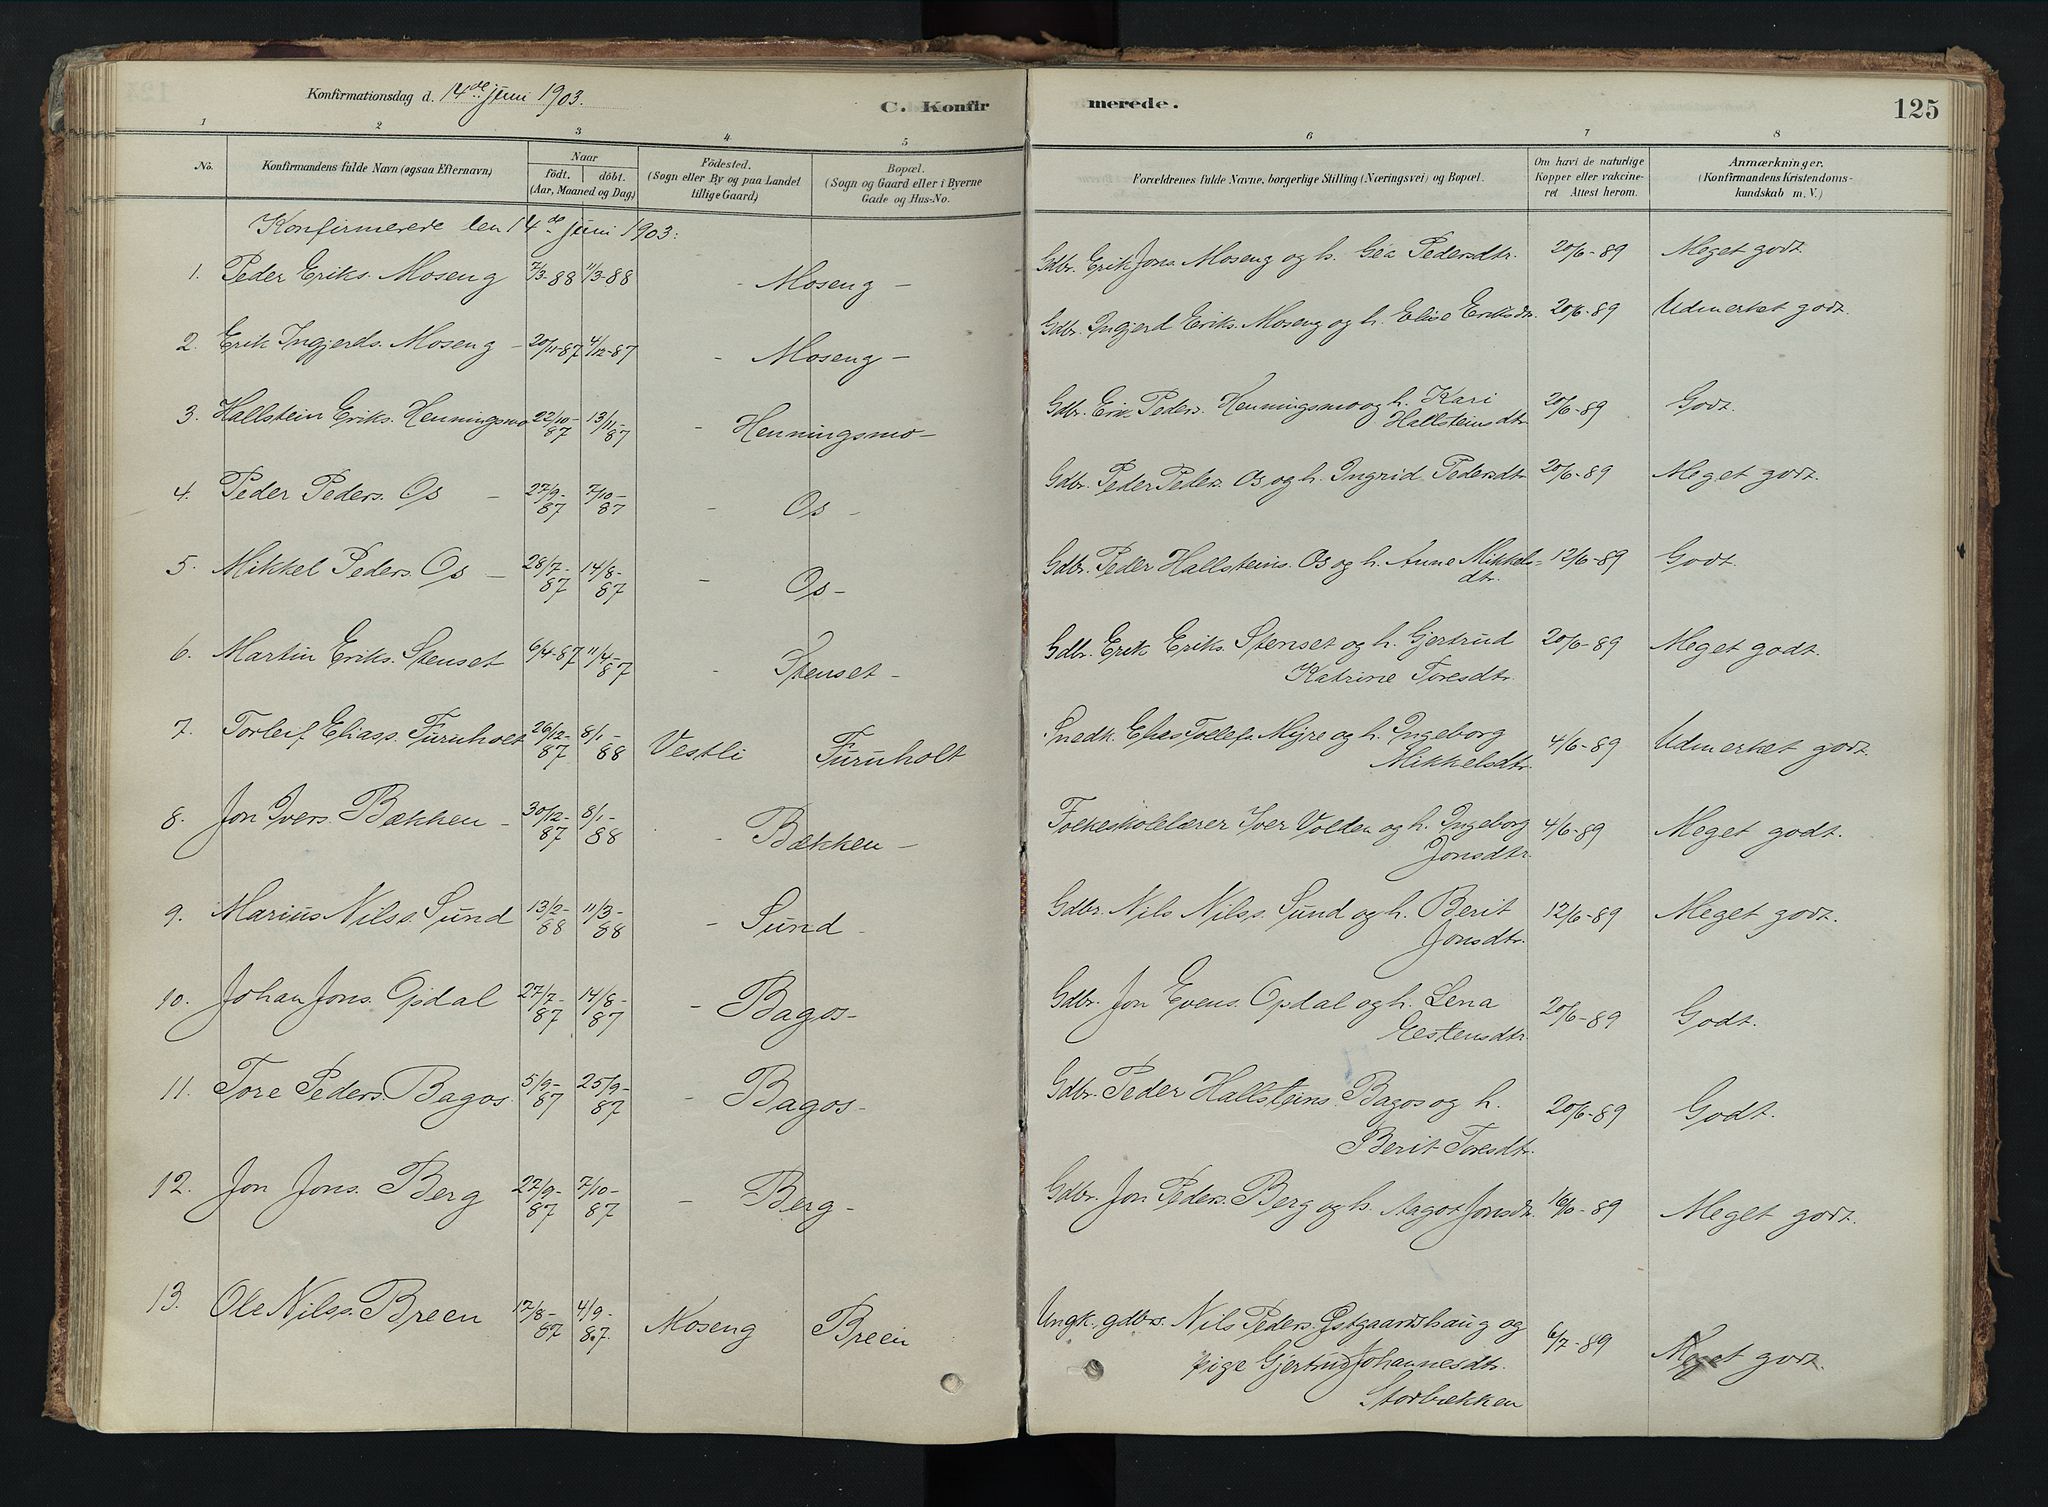 Konfirmationsdag d. 14de Juni 1903.
C. Konfirmerede.
125
1 2 3 4 5 6 7 8
No.
Konfirmandens fulde Navn (ogsaa Efternavn)
Naar
födt. döbt.
(Aar, Maaned og Dag)
Födested.
(Sogn eller By og paa Landet
tillige Gaard)
Bopæl.
(Sogn og Gaard eller i Byerne
Gade og Hus-No.
Forældrenes fulde Navne, borgerlige Stilling (Næringsvei) og Bopæl.
Om havt de naturlige
Kopper eller vakcine-
ret Attest herom.
Anmærkninger.
(Konfirmandens Kristendoms-
kundskab m. V.)
Konfirmerede den 14de Juni 1903:
1. Peder Eriks. Moseng 7/3-88 11/3-88 - Moseng - Gdbr. Erik Jons. Moseng og h. Gea Pedersdtr. 20/6-89 Meget godt.
2. Erik Ingjerds. Moseng - 20/11-87 4/12-87 - Moseng - Gdbr. Ingjerd Eriks. Moseng og h. Elise Eriksdtr. 20/6-89 Udmerket godt.
3. Hallstein Eriks. Henningsmo 22/10-87 13/11-87 - Henningsmo - Gdbr. Erik Peders. Henningsmo og h. Kari
Hallsteinsdtr. 20/6-89 Godt.
4. Peder Peders. Os - 27/9-87 7/10-87 - Os - Gdbr. Peder Peders. Os og h. Ingrid Pedersdtr 20/6-89 Meget godt.
5. Mikkel Peders. Os - 28/7-87 14/8-87 - Os - Gdbr. Peder Hallsteins. Os og h. Anne Mikkels-
dtr. 12/6-89 Godt.
6. Martin Eriks. Stenset 6/4-87 11/4-87 - Stenset - Gdbr. Erik Eriks. Stenset og h. Gjertrud
Katrine Toresdtr. 20/6-89 Meget godt.
7. Torleif Eliass. Furuholt 26/12-87 8/1-88 Vestli Furuholt Snedk. Elias Tollefs. Myre og h. Ingeborg
Mikkelsdtr. 4/6-89 Udmerket godt.
8. Jon Ivers. Bækken - 30/12-87 8/1-88 - Bækken - Folkeskolelærer Iver Volden og h. Ingeborg
Jonsdtr. 4/6-89 Meget godt.
9. Marius Nilss. Sund 13/2-88 11/3-88 - Sund - Gdbr. Nils Nilss. Sund og h. Berit
Jonsdtr. 12/6-89 Meget godt.
10. Johan Jons. Opdal 27/7-87 14/8-87 - Bagos - Gdbr. Jon Evens. Opdal og h. Lena
Estensdtr. 20/6-89 Godt.
11. Tore Peders. Bagos. 5/9-87 25/9-87 - Bagos - Gdbr. Peder Hallsteins. Bagos og h.
Berit Toresdtr. 20/6-89 Godt.
12. Jon Jons. Berg 27/9-87 7/10-87 - Berg - Gdbr. Jon Peders. Berg og h. Aagot Jonsdtr. -89 Meget godt.
13. Ole Nilss. Breen 17/8-87 4/9-87. Moseng Breen Ungk. gdbrs. Nils Peders. Østgaardshaug og
pige Gjertrud Johannesdtr.
Storbækken 6/7-89 Meget godt.